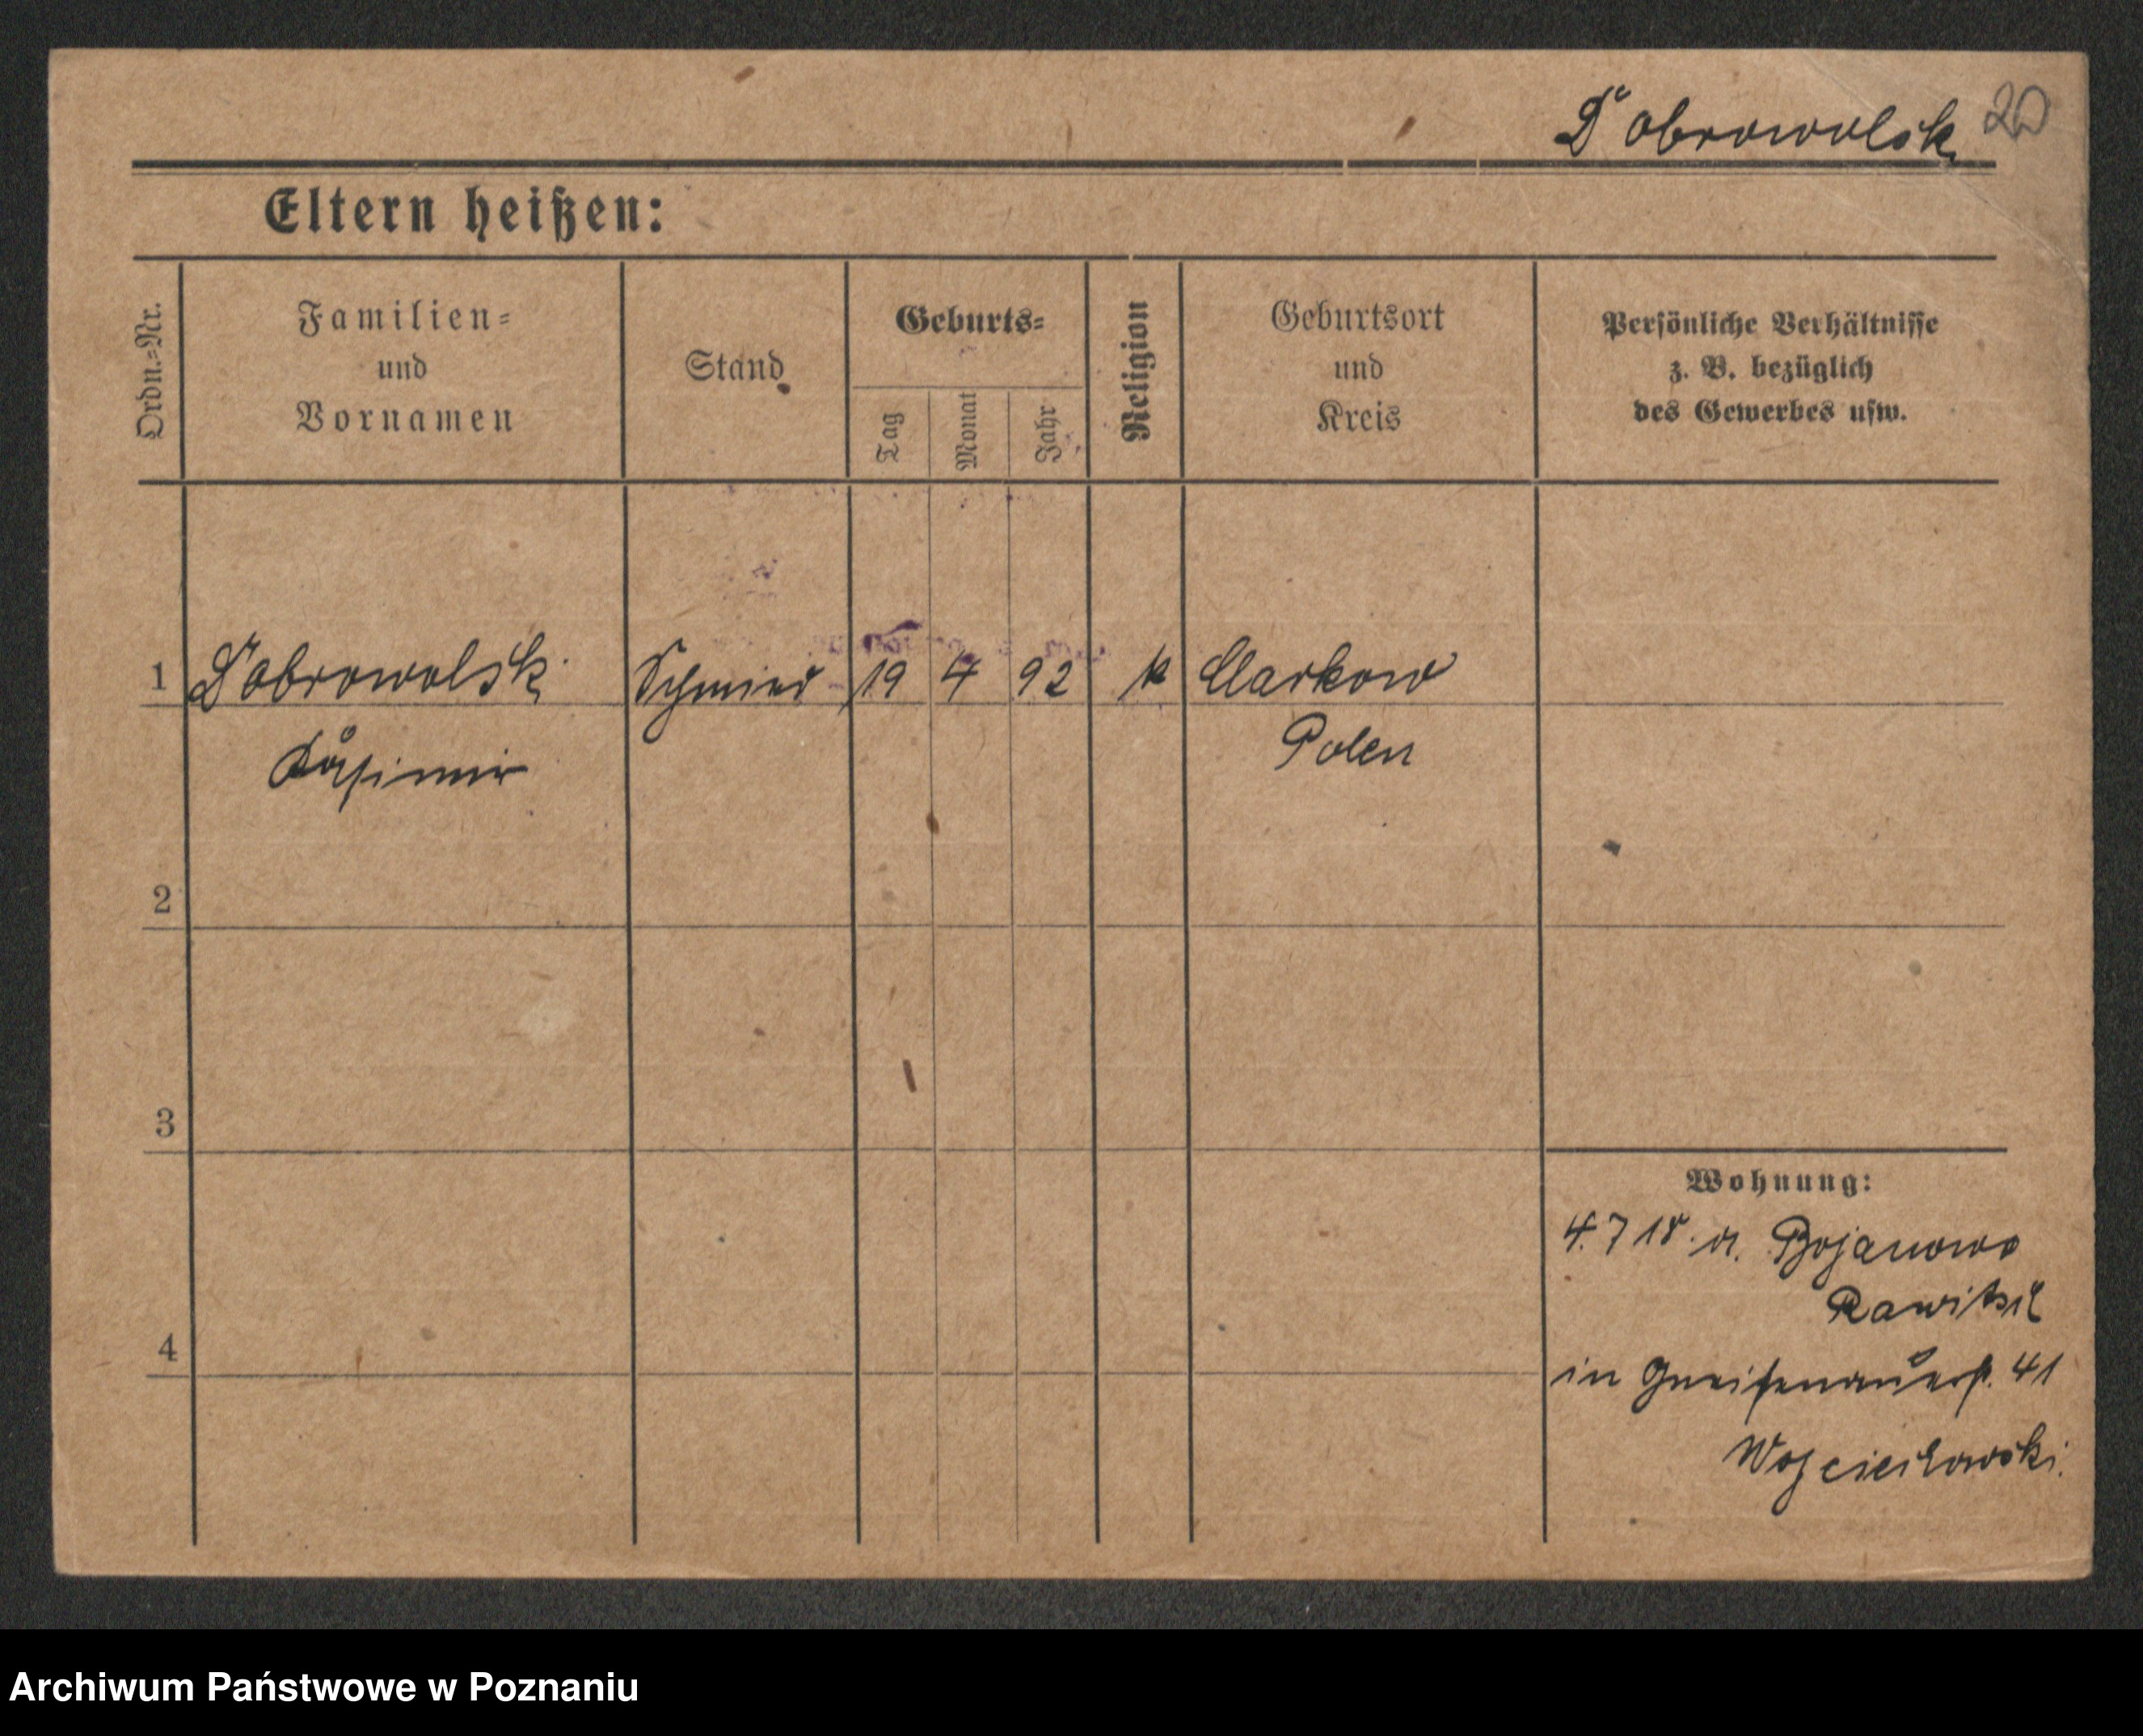 Dobrowolski 20
Eltern heißen:
Ordn.-Nr.
Familien-
und
Vornamen
Stand
Geburts-
Tag
Monat
Jahr
Religion
Geburtsort
und
Kreis
Persönliche Verhältnisse
z. B. bezüglich
des Gewerbes usw.
1 Dobrowolski Schmied 19 4 92 k Markow
Kasimir Polen
2
3
4
Wohnung:
4.7 18. v. Bojanowo
Rawitsch
in Gneisenauerst. 41
Wojciechowski.
Archiwum Państwowe w Poznaniu